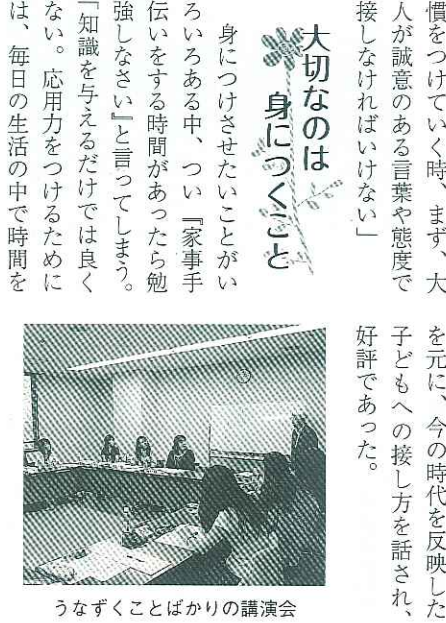 慣をつけていく時、まず、大
人が誠意のある言葉や態度で
接しなければいけない」
大切なのは
身につくこと
身につけさせたいことがい
ろいろある中、つい『家事手
伝いをする時間があったら勉
強しなさい』と言ってしまう。
「知識を与えるだけでは良く
ない。応用力をつけるために
は、毎日の生活の中で時間を
を元に、今の時代を反映した
子どもへの接し方を話され、
好評であった。
うなずくことばかりの講演会